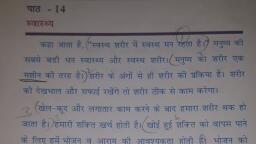 पाठ - 14
स्वास्थ्य
कहा जाता है, "स्वस्थ शरीर में स्वस्थ मन रहता है।" मनुष्य की
सबसे बड़ी धन स्वास्थ्य और स्वस्थ शरीर। मनुष्य का शरीर एक
मशीन की तरह है। शरीर के अंगों से ही शरीर की प्रक्रिया है। शरीर
की देखभाल और सफाई रखेंगे तो शरीर ठीक से काम करेगा।
खेल-कूद और लगातार काम करने के बाद हमारा शरीर थक हो
जाता है। हमारी शक्ति खर्च होती है। खोई हुई शक्ति को वापस पाने
के लिए हमें भोजन व आराम की आवश्यकता होती है। भोजन को